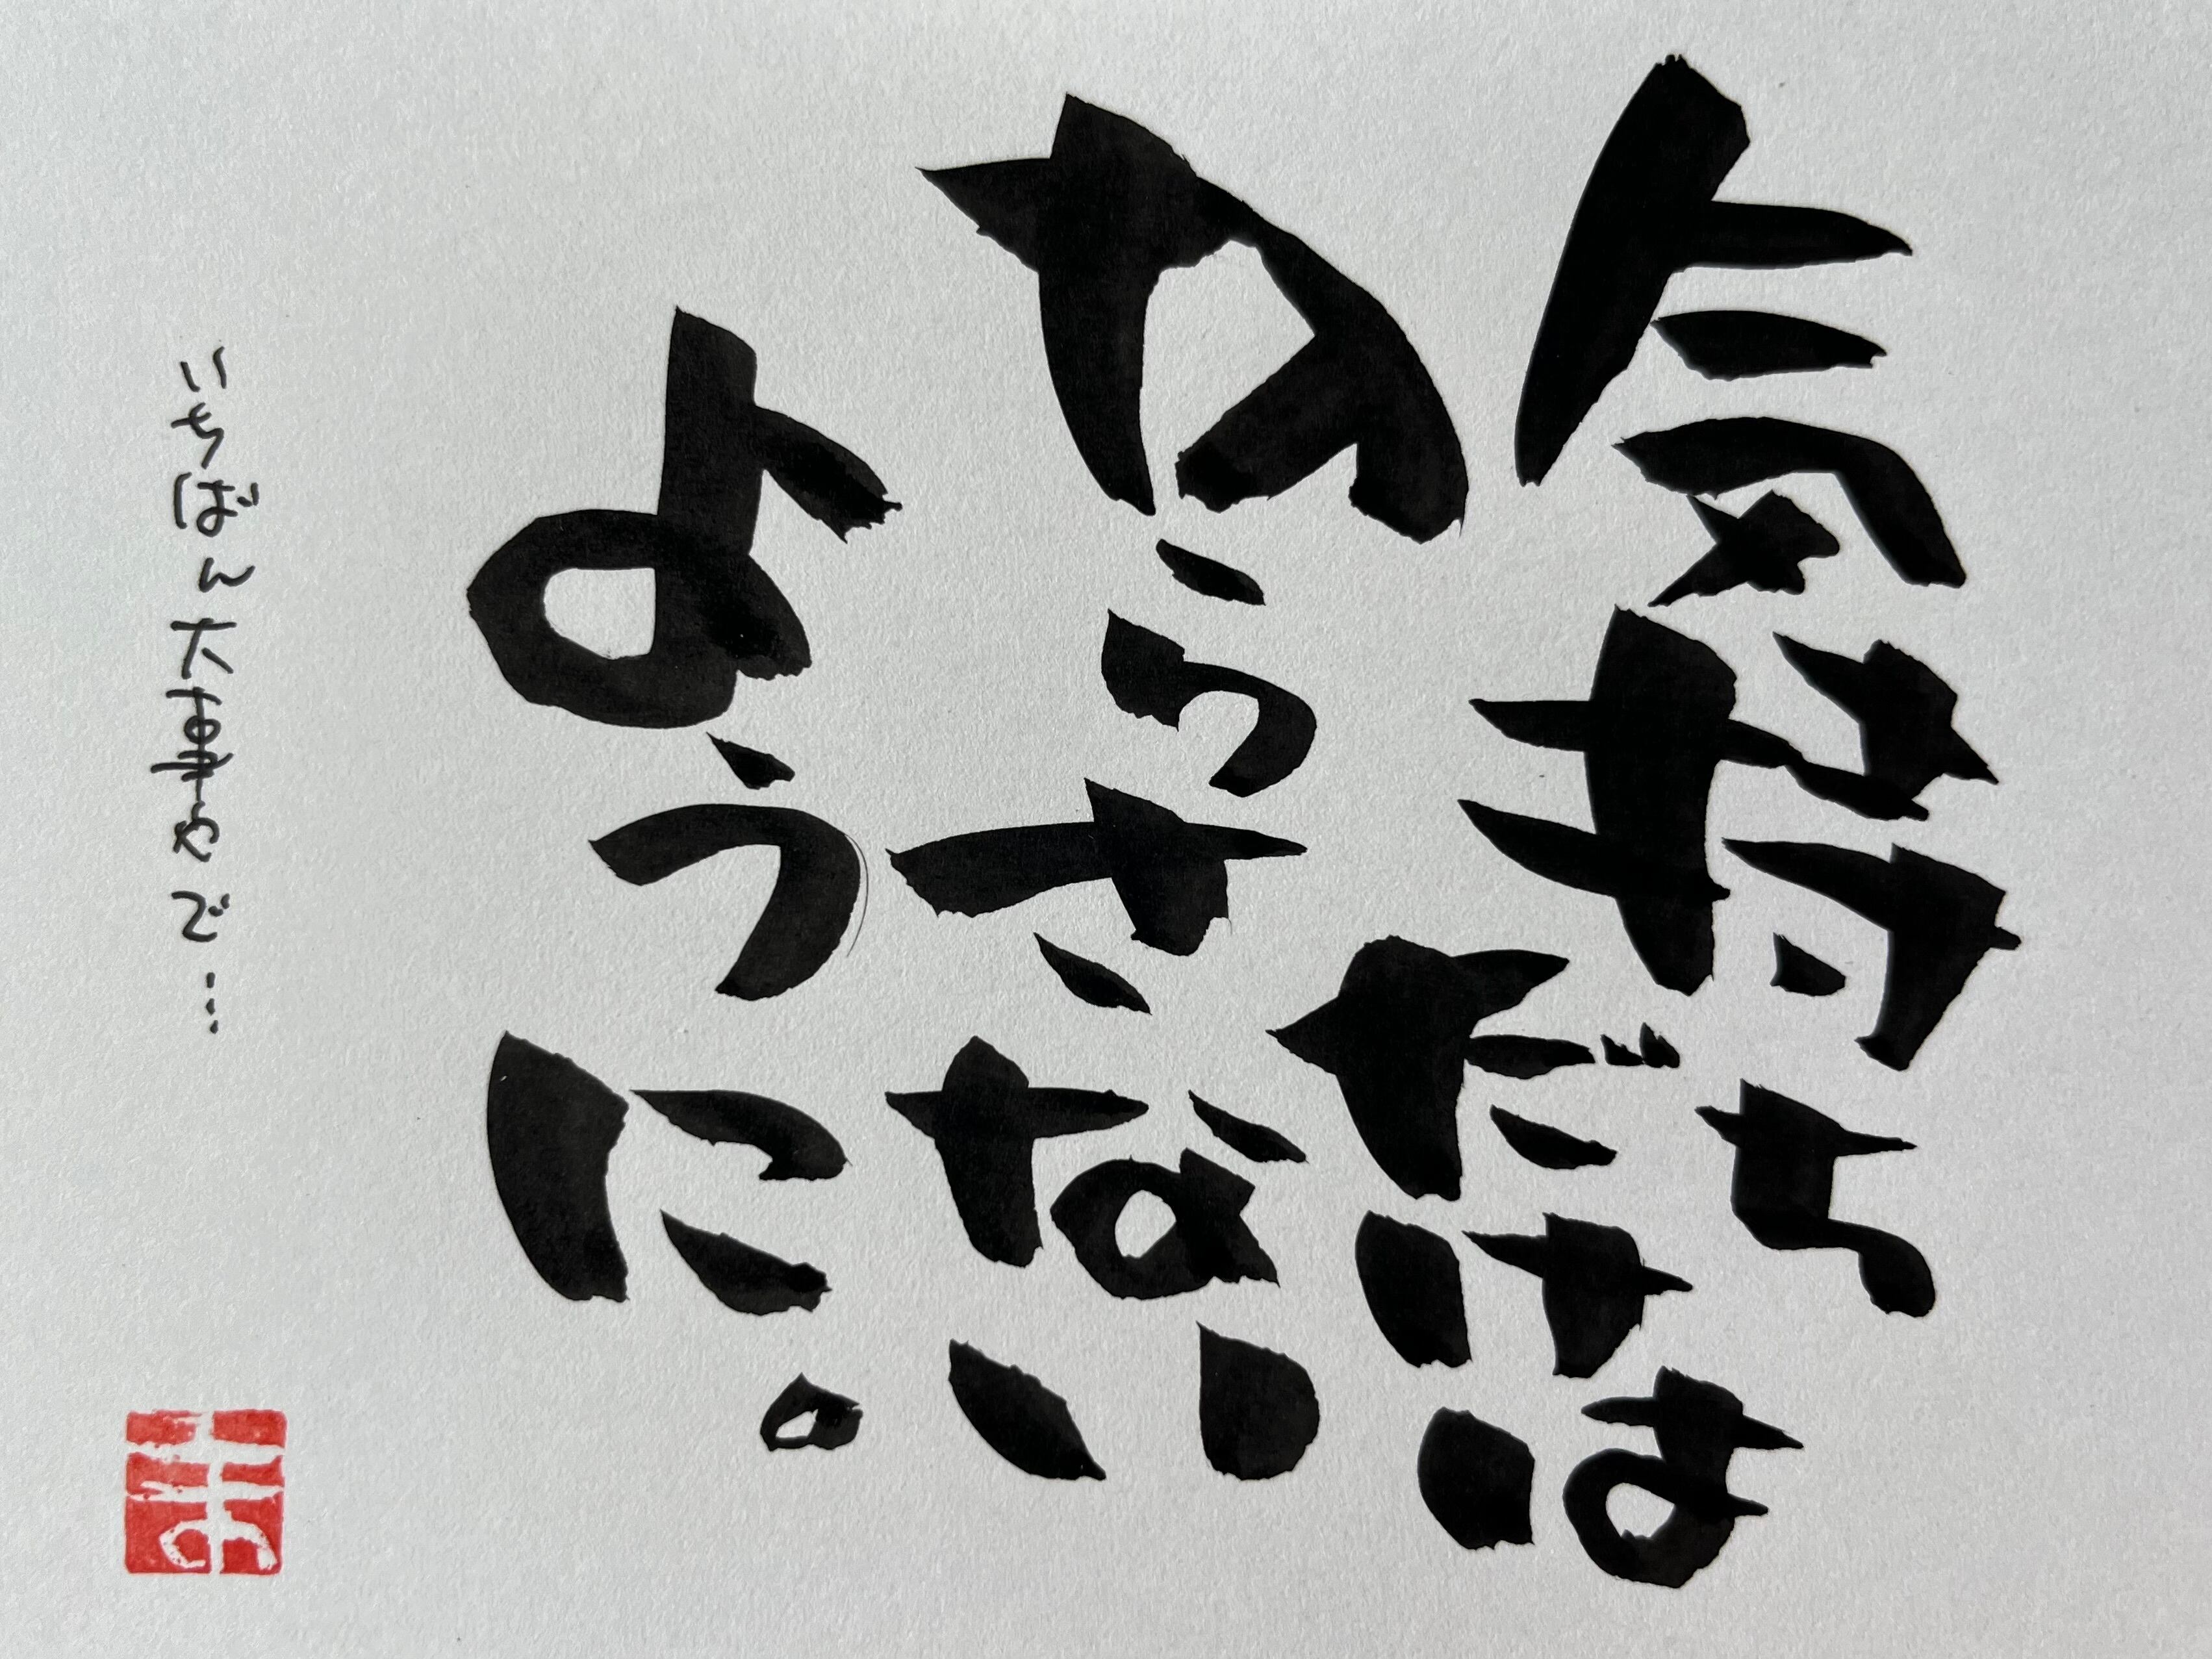 気持ちだけは
切らさない
ように。
いちばん大事やで…